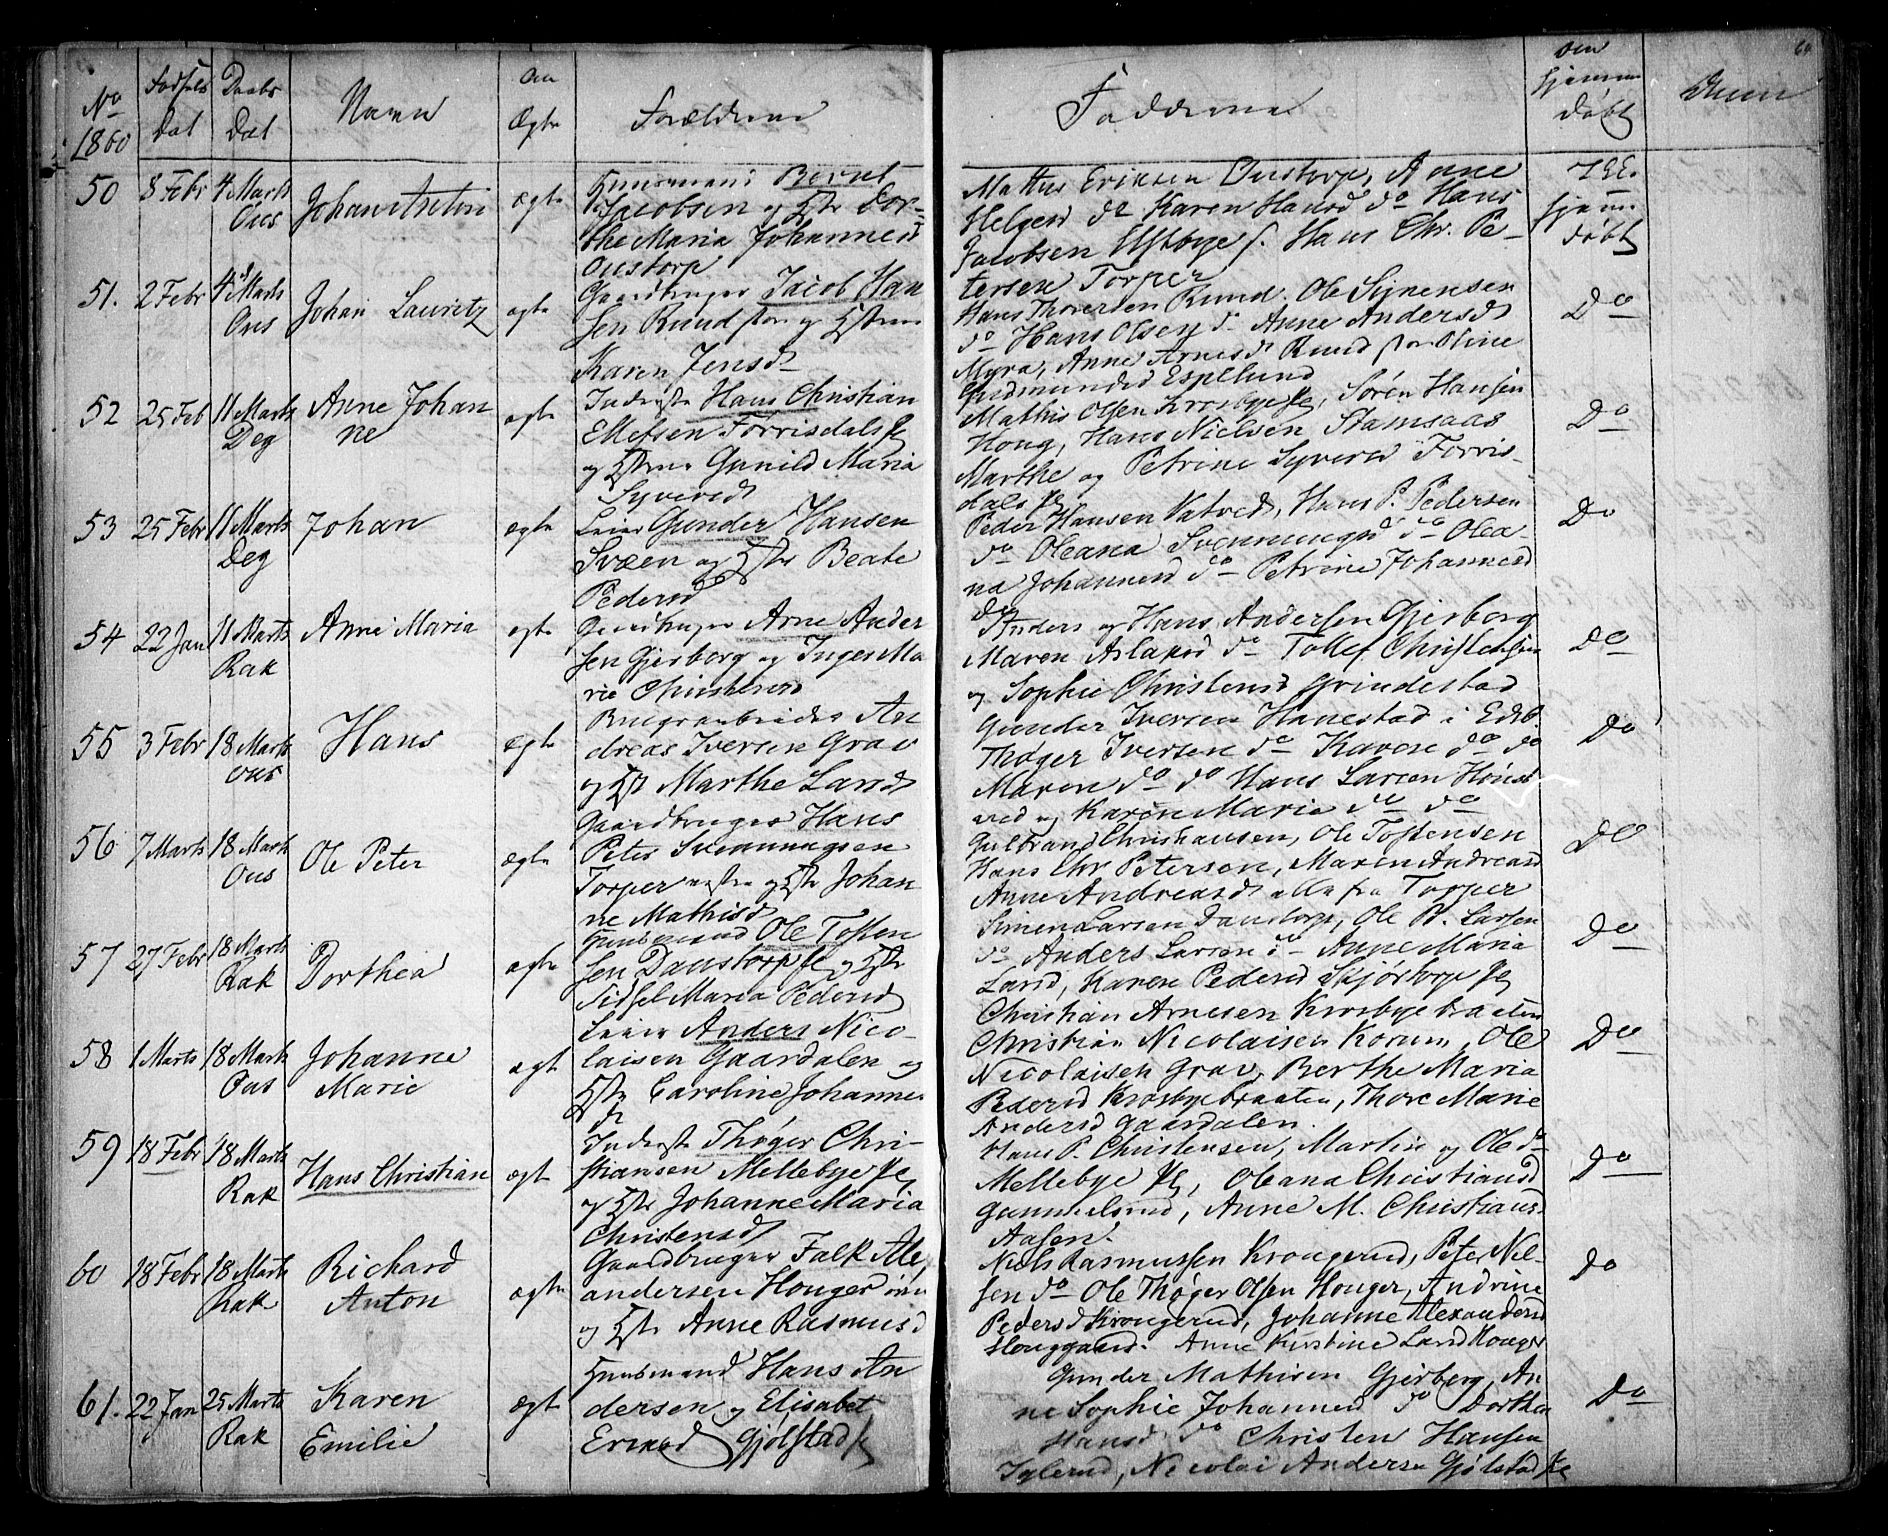 No
1860
Fødsels
Dat
Daabs
Dat
Navn
Om
Ægte
Forældrene
Fadderne
Om
hjemme
døbt
60
50 8 Febr 4 Marts
Ous
ægte
Huusmand Bernt
Jacobsen og Hstr Dor-
the Maria Johannesd
Oustorp
Mathis Eriksen Oustorp, Anne
Helgesd do Karen Hansd do Hans
Jacobsen Hans Chr. Pe-
tersen Torper
hjem
døbt
51. 2 Febr 4 Marts
Ous
Johan Lauritz
ægte
Gaardbruger Jacob Han
sen Ruud og Hstru
Karen Jensd
Hans Thoresen Ruud. Ole Syvensen
do Hans Olsen do Anne Andersd
Myra, Anne Arnesd Ruud Oline
Gudmundsd Espelund
Do
52 25 Feb 11 Marts
Deg
Anne Johan
ne
ægte
Inderste Hans Christian
Ellefsen Torrisdal
og Hstru Gunild Maria
Syversd
Mathis Olsen Krosbye, Søren Hansen
Houg, Hans Nielsen Stamsaas
Marthe og Petrine Syversd Torris-
dals
Do
53 25 Febr 11 Marts
Deg
Johan
ægte
Leier Gunder Hansen
Svæen og Hstr Beate
Pedersd
Peder Hansen Hans P. Pedersen
do Oleana Svenningsd do Olea-
na Johannesd do Petrine Johannesd
do
Do
54 22 Jan 11 Marts
Rak
Anne Maria
ægte
Gaardbruger Arne Ander
sen Gjerborg og Inger Ma
rie Christensd
Anders og Hans Andersen Gjerborg
Maren Aslaksd do Tollef Christensen
og Sophie Christensd Grindestad
Do
55 3 Febr 18 Marts
Ous
Hans
ægte
An
dreas Iversen Grav
og Hst Marthe Larsd
Gunder Iversen Hanestad i Edsb.
Thøger Iversen do Karen do do
Maren do do Hans Larsen Hønse
ved og Karen Maria do do
Do
56 7 Marts 18 Marts
Ous
Ole Peter
ægte
Gaardbruger Hans
Peter Svenningsen
Torper og Hstr Johan
ne Mathisd
Gulbrand Christiansen, Ole Tostensen
Hans Chr Petersen, Maren Andreasd
Anne Andreasd alle fra Torper
Do
57 27 Febr 18 Marts
Rak
Dorthea
ægte
Huusmand Ole Tosten
sen Danstorp og Hstr
Sidsel Maria Pedersd
Simen Larsen Danstorp, Ole P. Larsen
do Anders Larsen do Anne Maria
Larsd, Karen Pedersd Skjørtorp
Do
58 1 Marts 18 Marts
Ous
Johanne
Marie
ægt
Leier Anders Nico-
laisen Gaardalen og
Hstr Caroline Johannes
d
Christian Arnesen Krosbyebraaten
Christian Nicolaisen Korum, Ole
Nicolaisen Grav, Berthe Maria
Pedersd Krosbyebraaten, Thore Marie
Andersd Gaardalen.
Do
59 18 Febr 18 Marts
Rak
Hans Christian
ægt
Inderste Thøger Chri-
stiansen Mellebye
og Hstr Johanne Maria
Christensd
Hans P. Christensen, Martin og Ole do
Mellebye, Oleana Christiansd
Gunnelsrud, Anne M. Christians
Aasen.
Do
60 18 Febr 18 Marts
Rak
Richard
Anton
ægte
Gaardbruger Falk Alex
andersen Houger
og Hstr Anne Rasmusd
Niels Rasmussen Krougerud, Peter Niel-
sen do Ole Thøger Olsen Houger, Andrine
Pedersd Krougerud, Johanne Alexandersd
Houggaard. Anne Kirstine Larsd Houger
Do
61. 22 Jan 25 Marts
Rak
Karen
Emilie
ægte
Huusmand Hans An
dersen og Elisabet
Eriksd Gjølstad
Gunder Mathisen Gjerberg, An
ne Sophie Johannesd do Dorthea
Hansd do Christen Hansen
Iglerud, Nicolai Andersen Gjølstad
Do